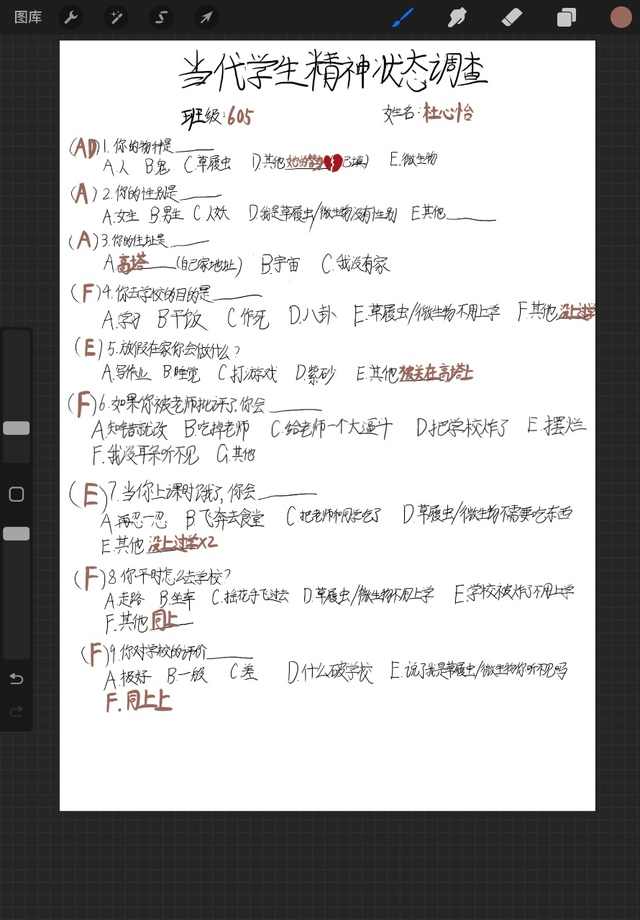 图库
当代学生精神状态调查
班级:605 姓名:杜心怡
(AD)1.你的物种是____
A.人 B.鬼 C.草履虫 D.其他 己填) E.微生物
(A)2.你的性别是____
A.女生 B.男生 C.人妖 D.我是草履虫/微生物没有性别 E.其他____
(A)3.你的住址是____
A.高塔____(自己家地址) B.宇宙 C.我没有家
(F)4.你去学校的目的是____
A.学习 B.干饭 C.作死 D.八卦 E.草履虫/微生物不用上学 F.其他没上过学
(E)5.放假在家你会做什么?
A.写作业 B.睡觉 C.打游戏 D.紫砂 E.其他被关在高塔上
(F)6.如果你被老师批评了,你会____
A.知错就改 B.吃掉老师 C.给老师一个大逼斗 D.把学校炸了 E.摆烂
F.我没耳朵听不见 G.其他
(E)7.当你上课时饿了,你会____
A.再忍一忍 B.飞奔去食堂 C.把老师和同学吃了 D.草履虫/微生物不需要吃东西
E.其他没上过学x2
(F)8.你平时怎么去学校?
A.走路 B.坐车 C.摇花手飞过去 D.草履虫/微生物不用上学 E.学校被炸了不用上学
F.其他同上
(F)9.你对学校的评价____
A.极好 B.一般 C.差 D.什么破学校 E.说了我是草履虫/微生物你听不见吗
F.同上上